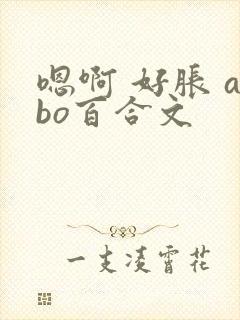 嗯啊 好胀 a
bo百合文
一支凌霄花